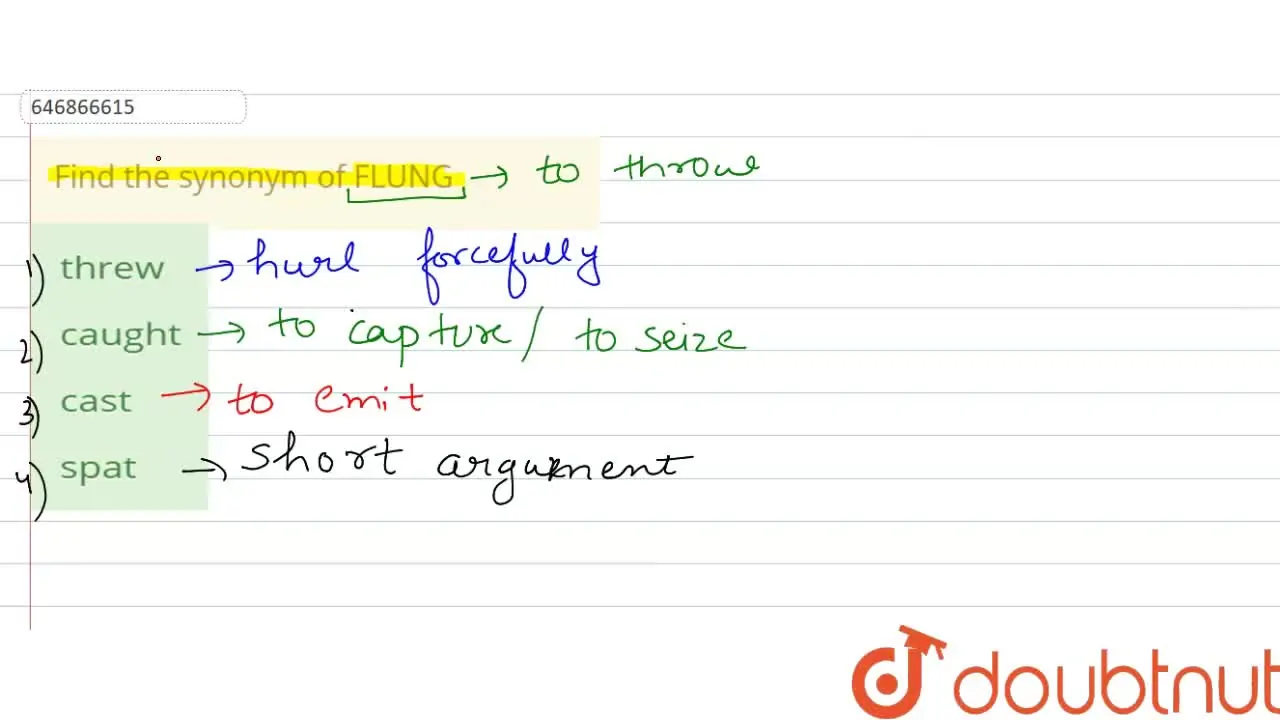 646866615
Find the synonym of FLUNG → to throw
1) threw → hurl forcefully
2) caught → to capture / to seize
3) cast → to emit
4) spat → short argument
doubtnut